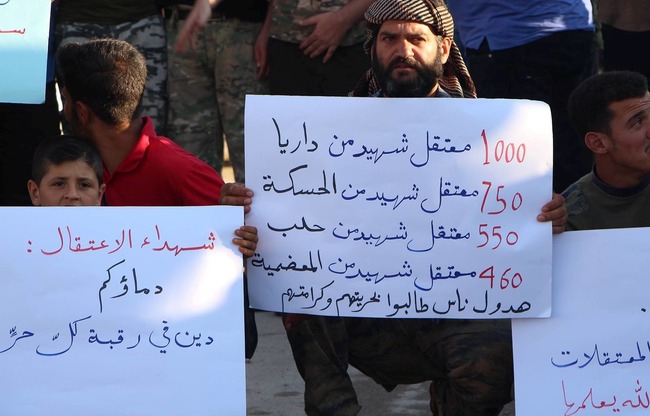 1000 معتقل شهيد من داريا
750 معتقل شهيد من الحسكة
550 معتقل شهيد من حلب
460 معتقل شهيد من المعضمية
هدول ناس طالبوا بحريتهم وكرامتهم
شهداء الاعتقال:
دماؤكم
دين في رقبة كلّ حرّ
المعتقلات
الله يعلمها